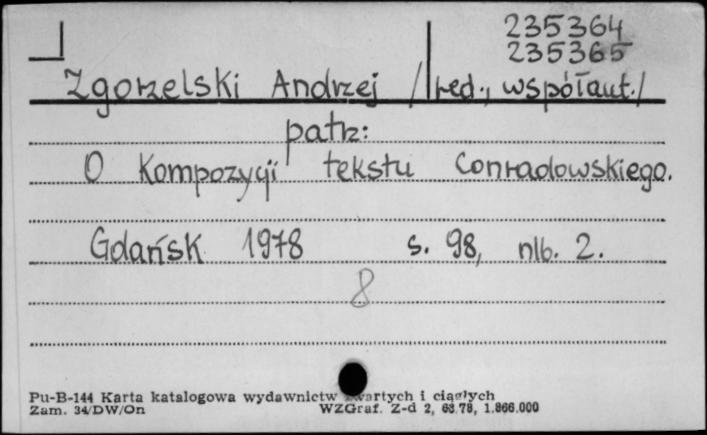 235364
235365
Zgorzelski Andrzej /red., współaut./
patrz:
O Kompozycji tekstu Conradowskiego.
Gdańsk 1978 s. 98, nlb. 2.
8
Pu-B-144 Karta katalogowa wydawnictw zwartych i ciągłych
Zam. 34/DW/On WZGraf. Z-d 2, 63.78, 1.866.000